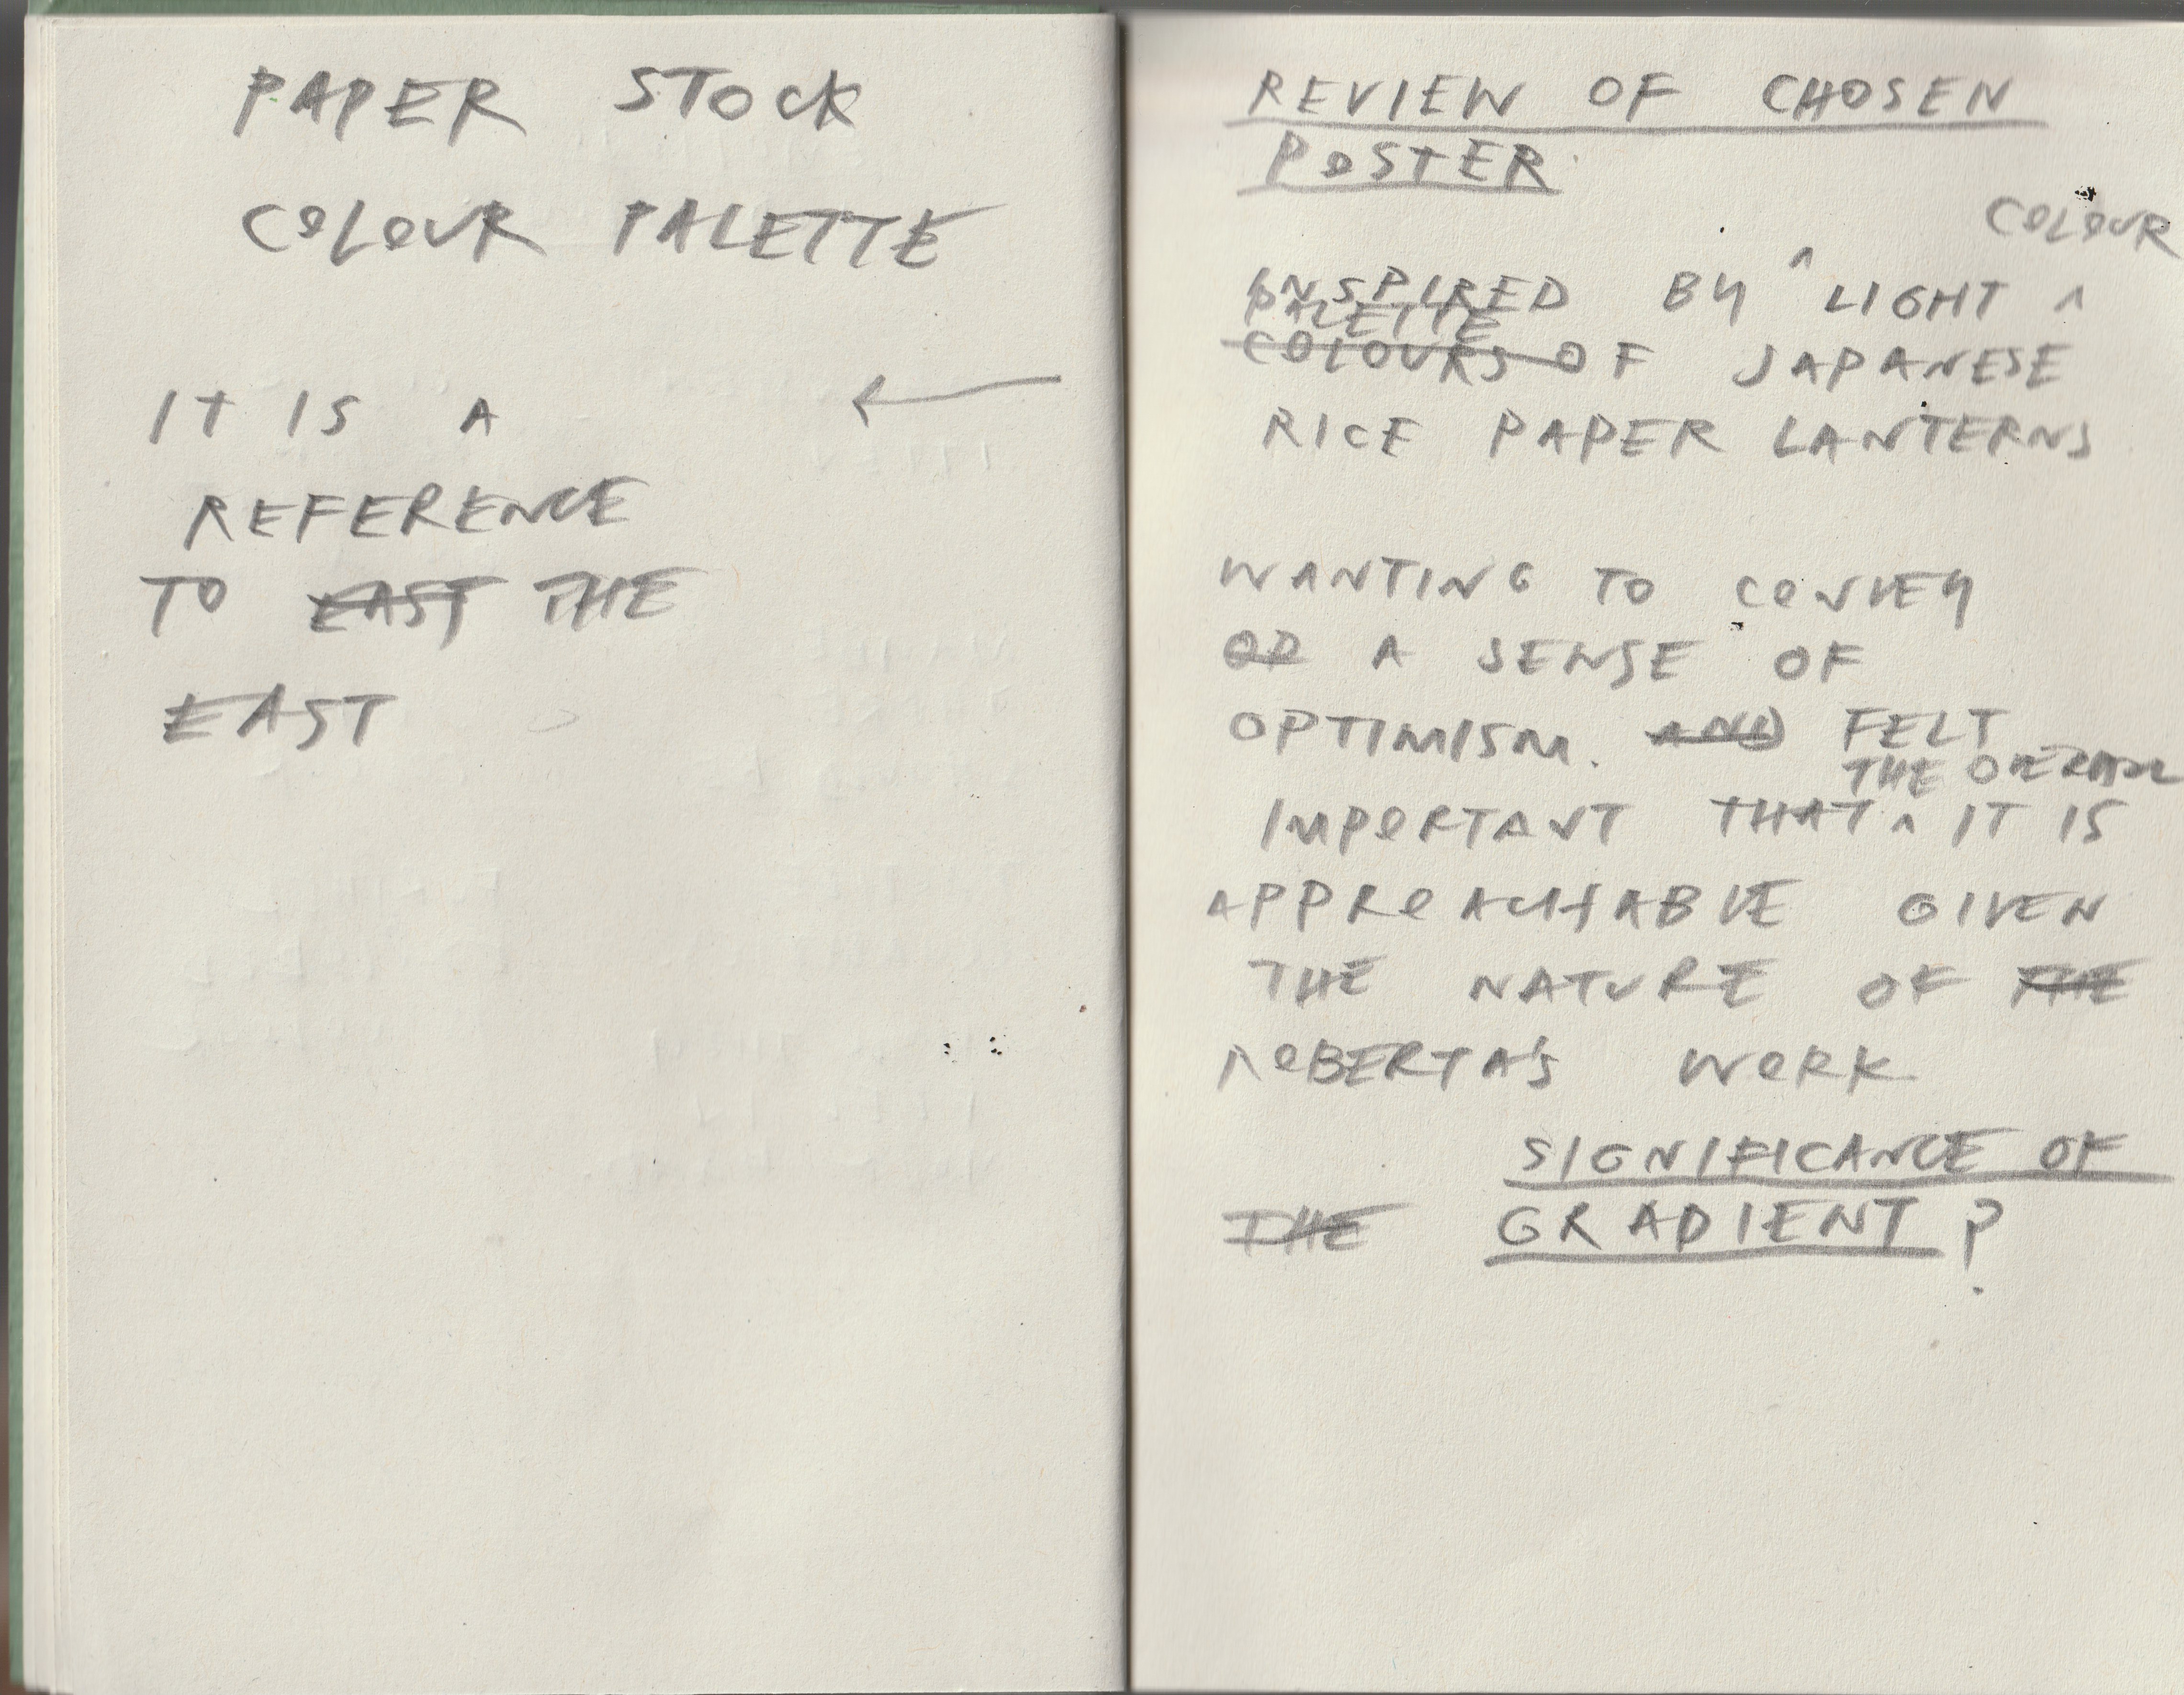 PAPER STOCK
COLOUR PALETTE
IT IS A
REFERENCE
TO EAST THE
EAST
REVIEW OF CHOSEN
POSTER
COLOUR
INSPIRED BY ^ LIGHT ^
PALETTE
COLOURS OF JAPANESE
RICE PAPER LANTERNS
WANTING TO CONVEY
A SENSE OF
OPTIMISM. AND FELT
THE
IMPORTANT THAT ^ IT IS
APPROACHABLE GIVEN
THE NATURE OF THE
ROBERTA'S WORK
SIGNIFICANCE OF
THE GRADIENT?